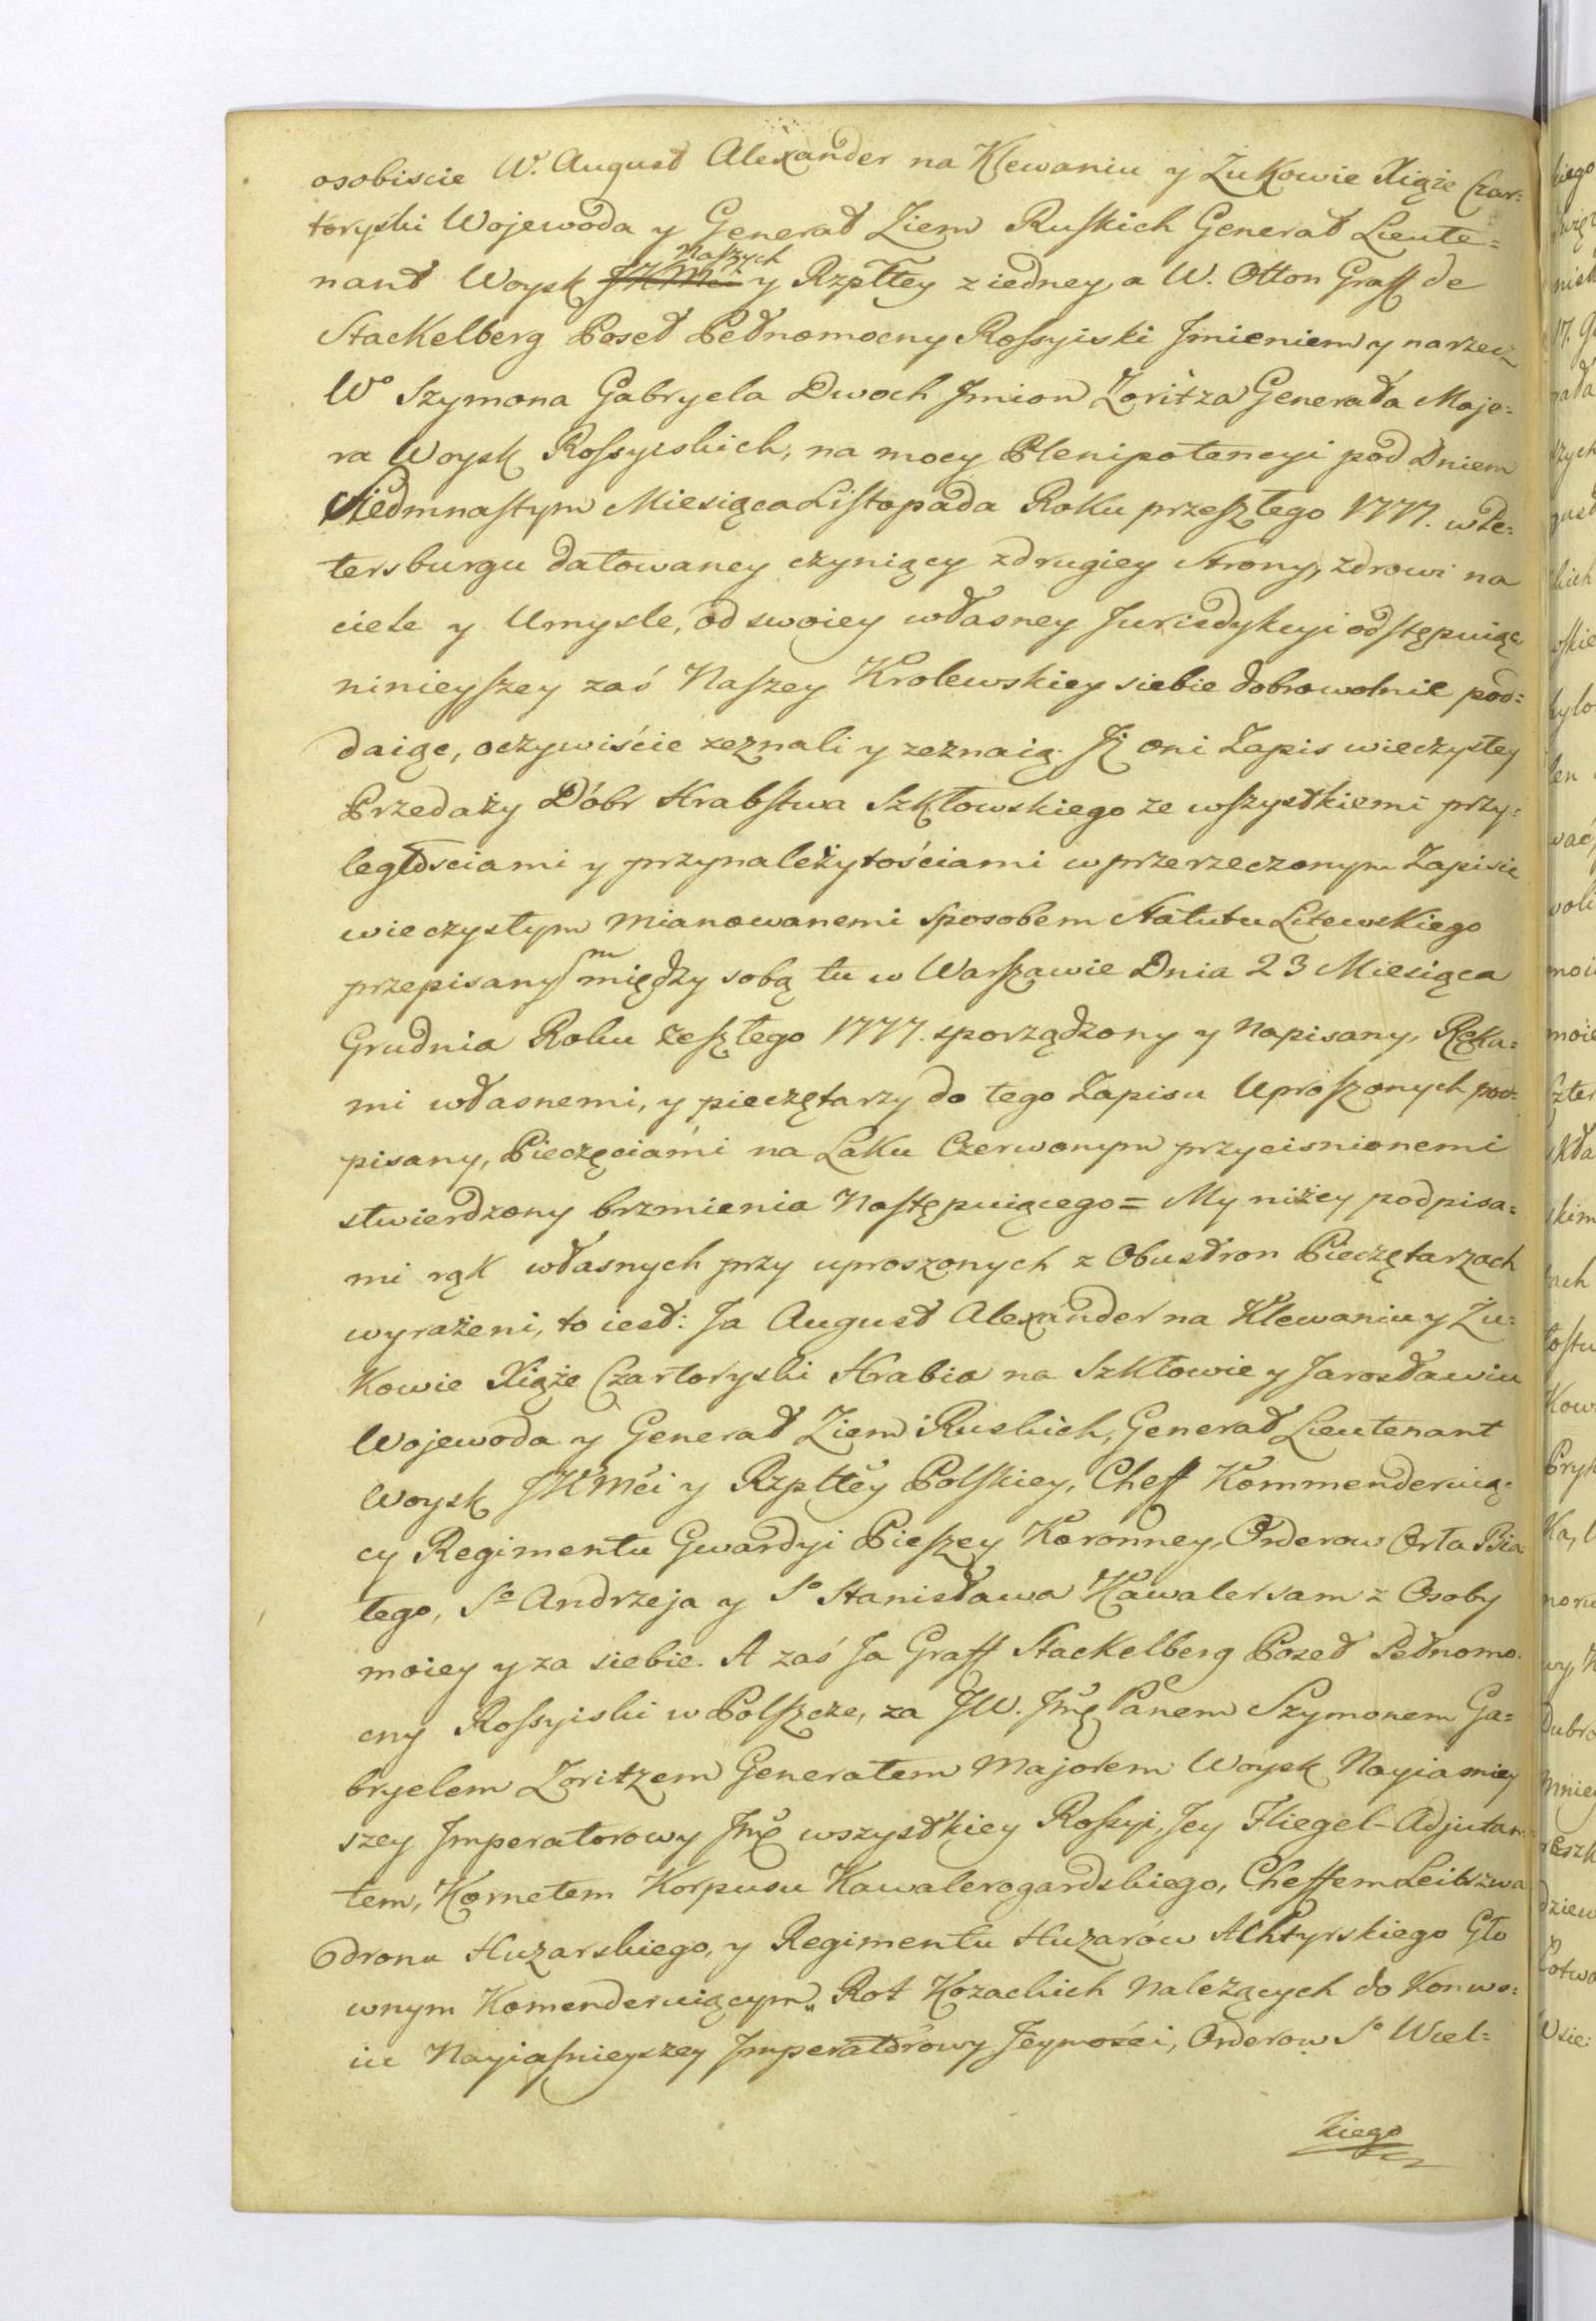 osobiscie W. August Alexander na Klewaniu y Żukowie Xiąże Czar=
toryski Wojewoda y Generał Ziem Ruskich Generał Lieute=
nant Woysk JKMci Naszych y Rzpltey z iedney, a W. Otton Graff de
Stackelberg Poseł Pełnomocny Rossyiski Jmieniem y na rzecz
Wo Szymona Gabryela Dwoch Jmion Zoritza Generała Majo=
ra Woysk Rossyiskich, na mocy Plenipotencyi pod Dniem
Siedmnastym Miesiąca Listopada Roku przeszłego 1777. w Pe=
tersburgu datowaney czyniący z drugiey Strony, zdrowi na
ciele y Umysle, od swoiey własney Jurisdykcyi odstępuiąc
ninieyszey zaś Naszey Krolewskiey siebie dobrowolnie pod=
daiąc, oczywiście zeznali y zeznaią. Jż oni Zapis wieczystey
Przedaży Dóbr Hrabstwa Szkłowskiego ze wszystkiemi przy=
ległościami y przynależytościami w przerzeczonym Zapisie
wieczystym mianowanemi sposobem Statutu Litewskiego
przepisanym między sobą tu w Warszawie Dnia 23 Miesiąca
Grudnia Roku zeszłego 1777. sporządzony y Napisany, Ręka=
mi własnemi, y pieczętarzy do tego Zapisu Uproszonych pod=
pisany, Pieczęciami na Laku Czerwonym przycisnionemi
stwierdzony brzmienia Następuiącego = My niżey podpisa=
mi rąk własnych przy uproszonych z Obustron Pieczętarzach
wyrażeni, to iest: Ja August Alexander na Klewaniu y Żu=
kowie Xiąże Czartoryski Hrabia na Szkłowie y Jarosławiu
Wojewoda y Generał Ziem Ruskich, Generał Lieutenant
Woysk JKMci y Rzpltey Polskiey, Cheff Kommenderuią=
cy Regimentu Gwardyi Pieszey Koronney, Orderow Orła Bia
łego, So Andrzeja y So Stanisława Kawaler sam z Osoby
moiey y za siebie. A zaś Ja Graff Stackelberg Poseł Pełnomo
cny Rossyiski w Polszcze, za JW. Jmę Panem Szymonem Ga=
bryelem Zoritzem Generałem Majorem Woysk Nayiasniey
szey Jmperatorowy Jmę wszystkiey Rossyi, Jey Fliegel-Adjutan=
tem, Kornetem Korpusu Kawalerogardskiego, Cheffem Leib szwa
drona Huzarskiego, y Regimentu Huzarów Achtyrskiego Gło
wnym Komenderuiącym, Rot Kozackich Należących do Konwo=
iu Nayiasnieyszey Jmperatorowy Jeymości, Orderow So Wiel=
kiego